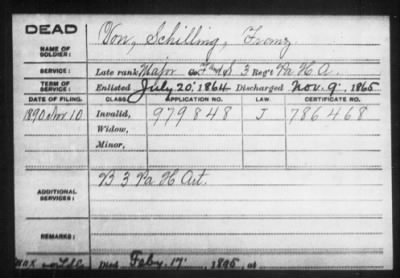 DEAD
NAME OF SOLDIER: Von, Schilling, Franz
SERVICE: Late rank Major Co. F and S 3 Reg't Pa H A.
TERM OF SERVICE: Enlisted July 20, 1864 Discharged Nov. 9, 1865
DATE OF FILING. CLASS. APPLICATION NO. LAW. CERTIFICATE NO.
1890 Nov. 10 Invalid, 979848 J 786468
Widow,
Minor,
ADDITIONAL SERVICES: B 3 Pa H Art.
REMARKS:
Died Feby. 17, 1895, at